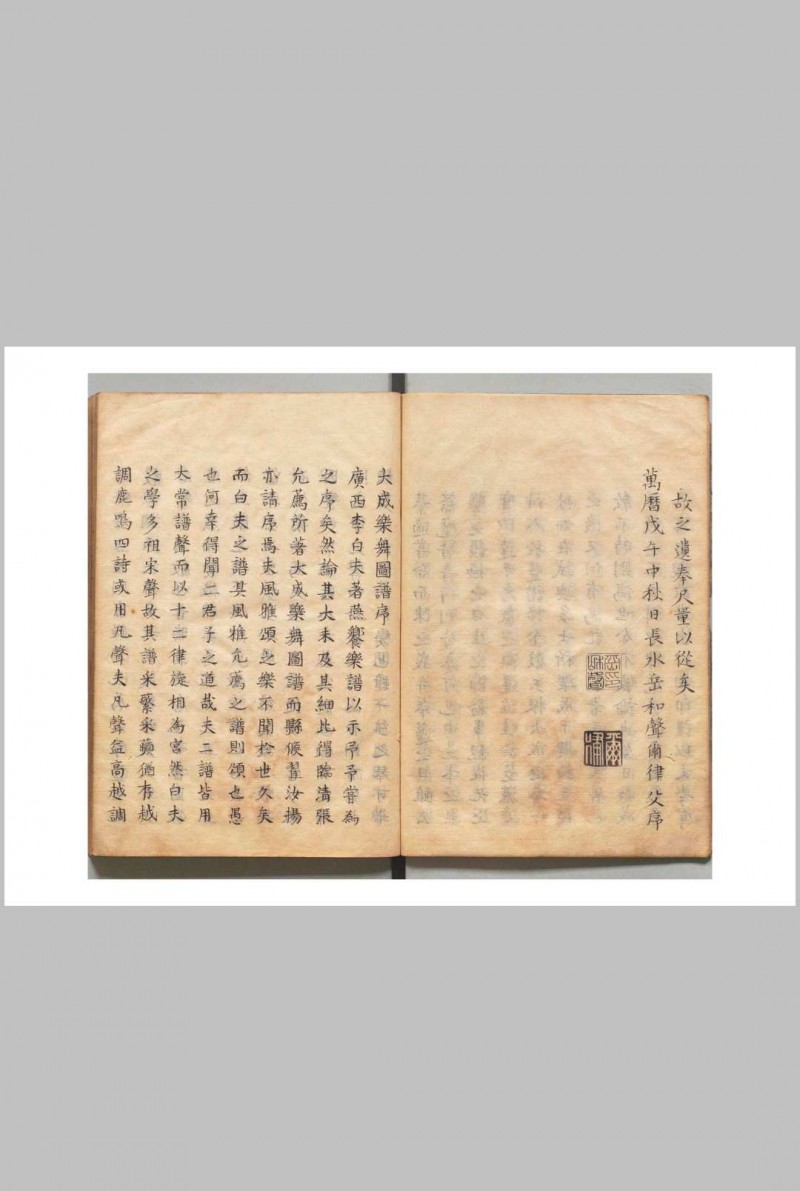 故之遺奉尺童以從矣
萬曆戊午中秋日長水岳和聲爾律父序
大成樂舞圖譜序
廣西李白夫著燕饗樂譜以示予予嘗為
之序矣然論其大未及其細比得臨清張
允薦所著大成樂舞圖譜而縣侯翟汝揚
亦請序焉夫風雅頌之樂不聞於世久矣
而白夫之譜其風雅允薦之譜則頌也愚
也何幸得聞二君子之道哉夫二譜皆用
太常譜聲而以十二律旋相為宮然白夫
之學多祖宋聲故其譜采蘩采蘋猶存越
調鹿鳴四詩或用凡聲夫凡聲益高越調